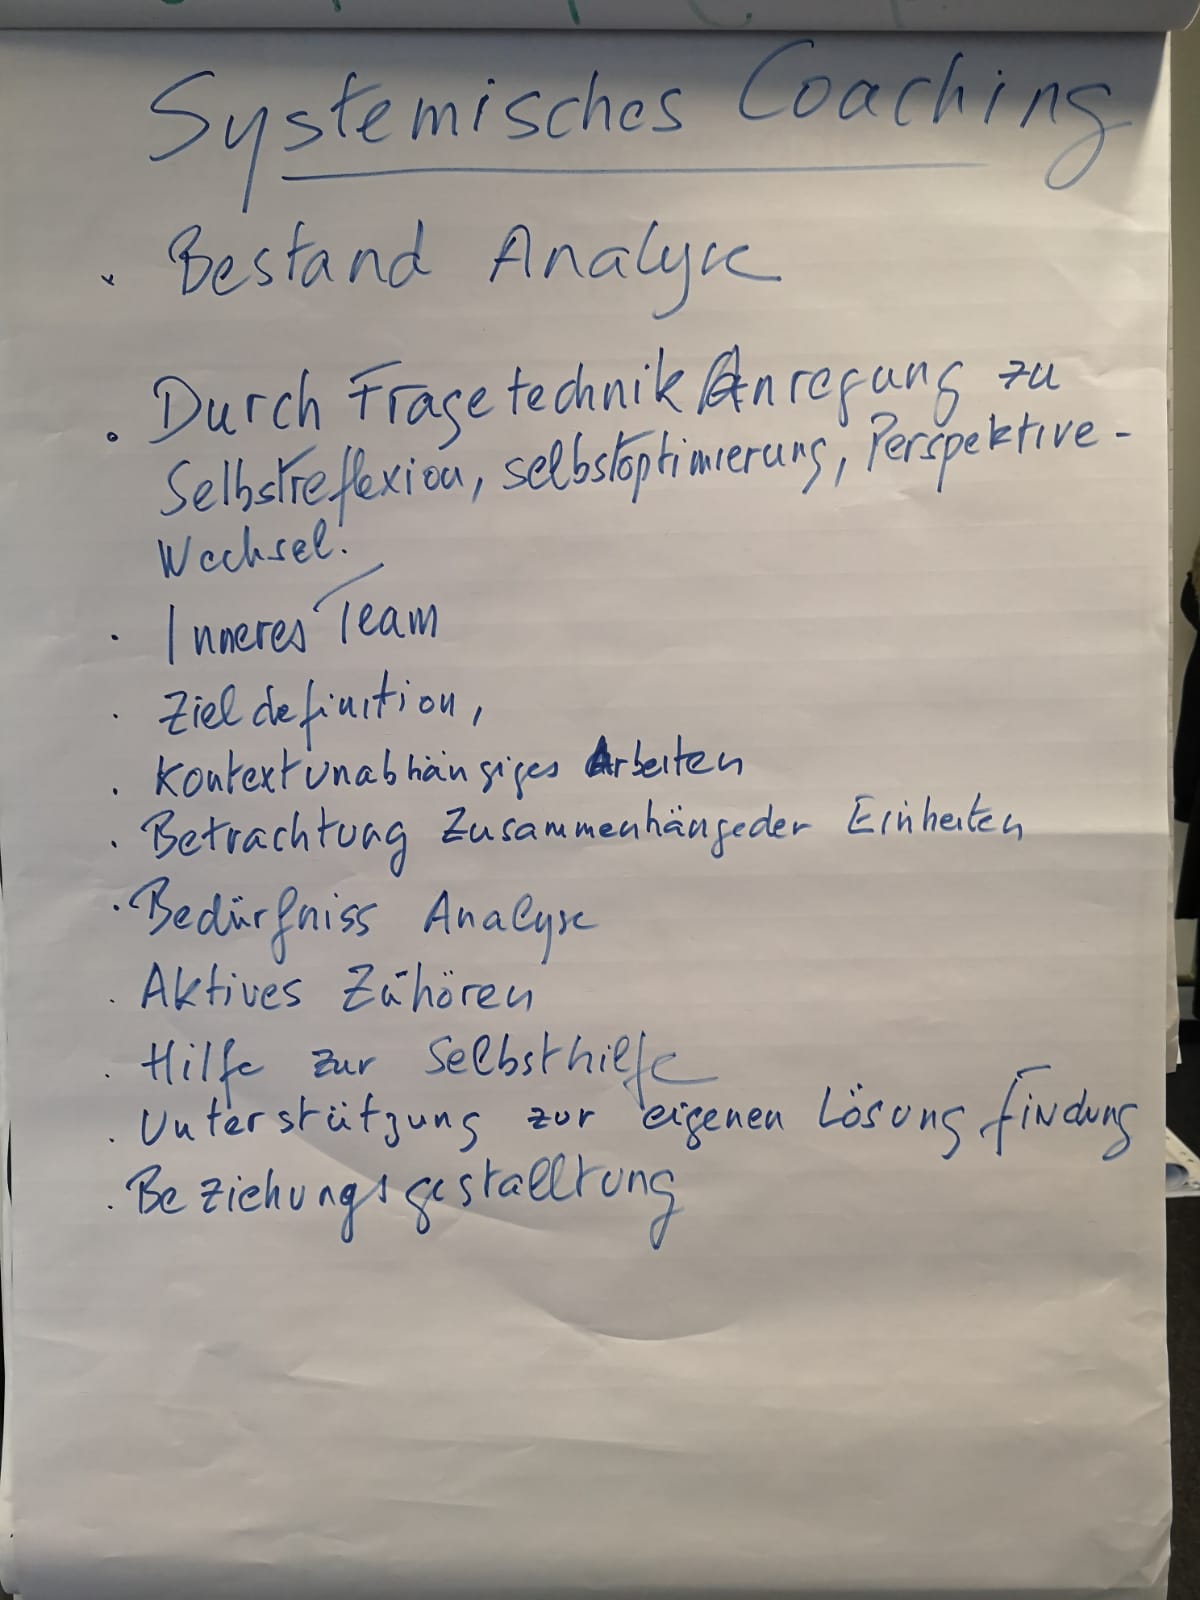 Systemisches Coaching
Bestand Analyse
Durch Fragetechnik Anregung zu
Selbstreflexion, selbstoptimierung, Perspektive-
Wechsel.
Inneres Team
Zieldefinition,
Kontextunabhängiges Arbeiten
Betrachtung Zusammenhängeder Einheiten
Bedürfniss Analyse
Aktives Zuhören
Hilfe zur Selbsthilfe
Unterstützung zur eigenen Lösung findung
Beziehungsgestalltung